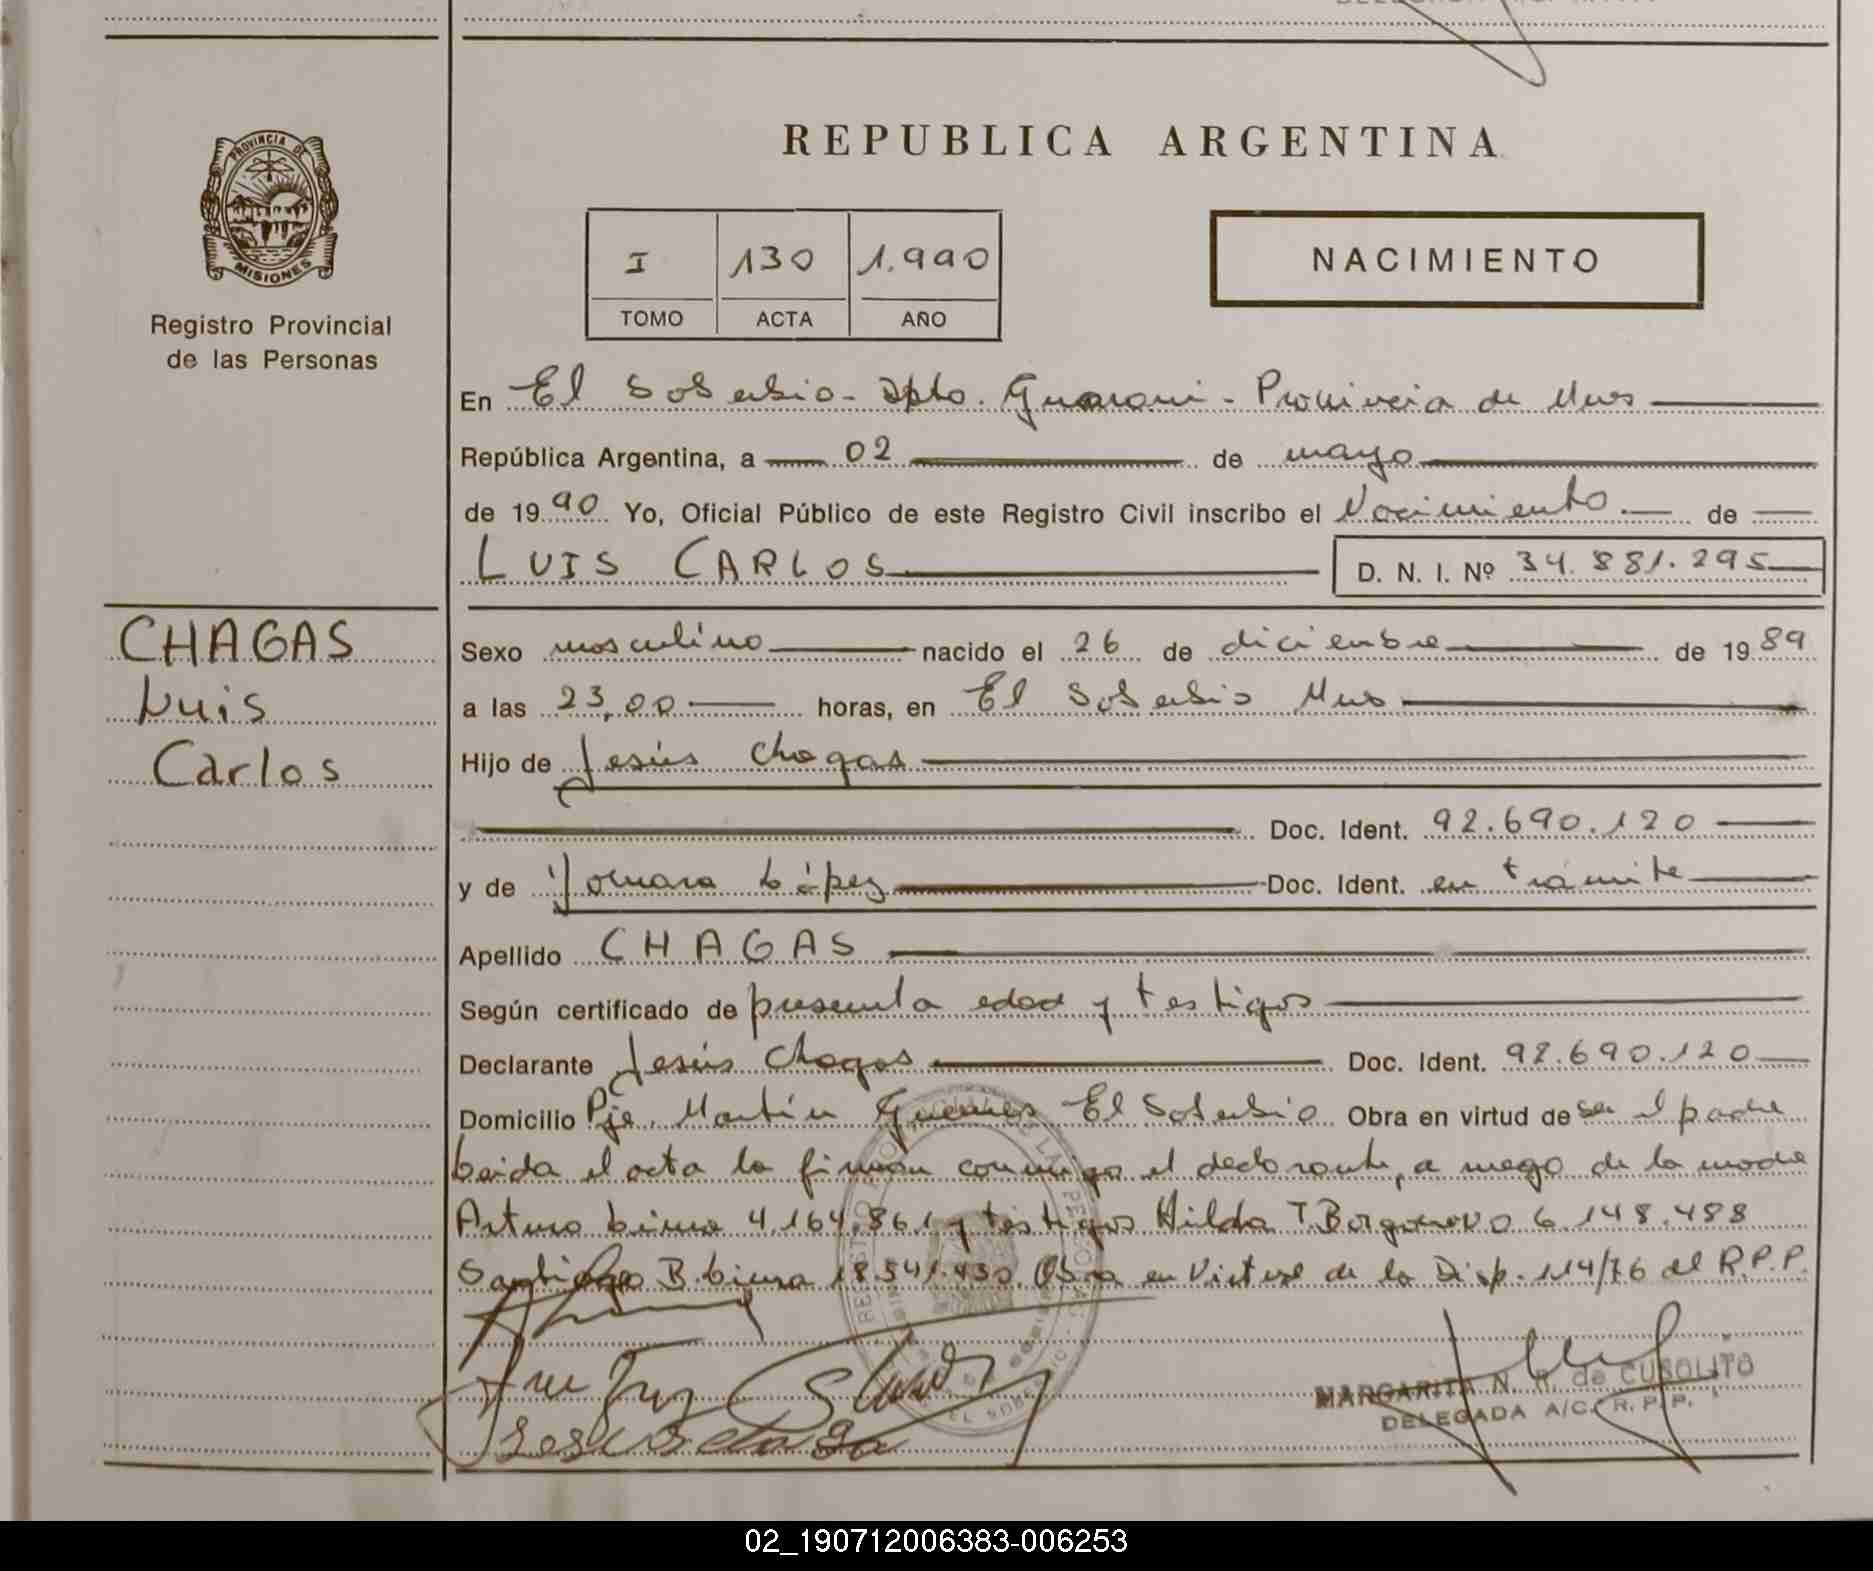 PROVINCIA DE
MISIONES
Registro Provincial
de las Personas
REPUBLICA ARGENTINA
I 130 1.990
TOMO ACTA AÑO
NACIMIENTO
En El Soberbio - Dpto. Guarani - Provincia de Mnes
República Argentina, a 02 de mayo
de 1990 Yo, Oficial Público de este Registro Civil inscribo el Nacimiento de
LUIS CARLOS D. N. I. Nº 34.881.295
CHAGAS
Luis
Carlos
Sexo masculino nacido el 26 de diciembre de 1989
a las 23,00 horas, en El Soberbio Mnes
Hijo de Jesús Chagas
Doc. Ident. 92.690.120
y de López Doc. Ident. en trámite
Apellido CHAGAS
Según certificado de presunta edad y testigos
Declarante Jesús Chagas Doc. Ident. 92.690.120
Domicilio Pje. Martín Guemes El Soberbio Obra en virtud de ser el padre
Leida el acta la firman conmigo el declarante, a ruego de la madre
Arturo 4.164.861 y testigos Hilda T 6.148.488
Santiago B. 18.541.430. Obra en Virtud de la Disp. 114/76 del R.P.P.
MARGARITA N. R. de CUSOLITO
DELEGADA A/C. R. P. P.
02_190712006383-006253